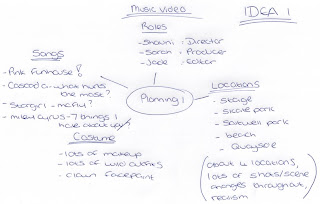 Music video
IDEA 1
Roles
- Shauni : Director
- Sarah : Producer
- Jade : Editor
Songs
- Pink funhouse!
- Cascada - what hurts
the most?
- Stargirl - mcfly?
- miley cyrus - 7 things i
hate about you?
Planning 1
Locations
- Stage
- Skate park
- Saltwell park
- beach
- Quayside
(about 4 locations,
lots of shots/scene
changes throughout,
realism
Costume
- lots of makeup
- lots of wild clothes
- clown facepaint